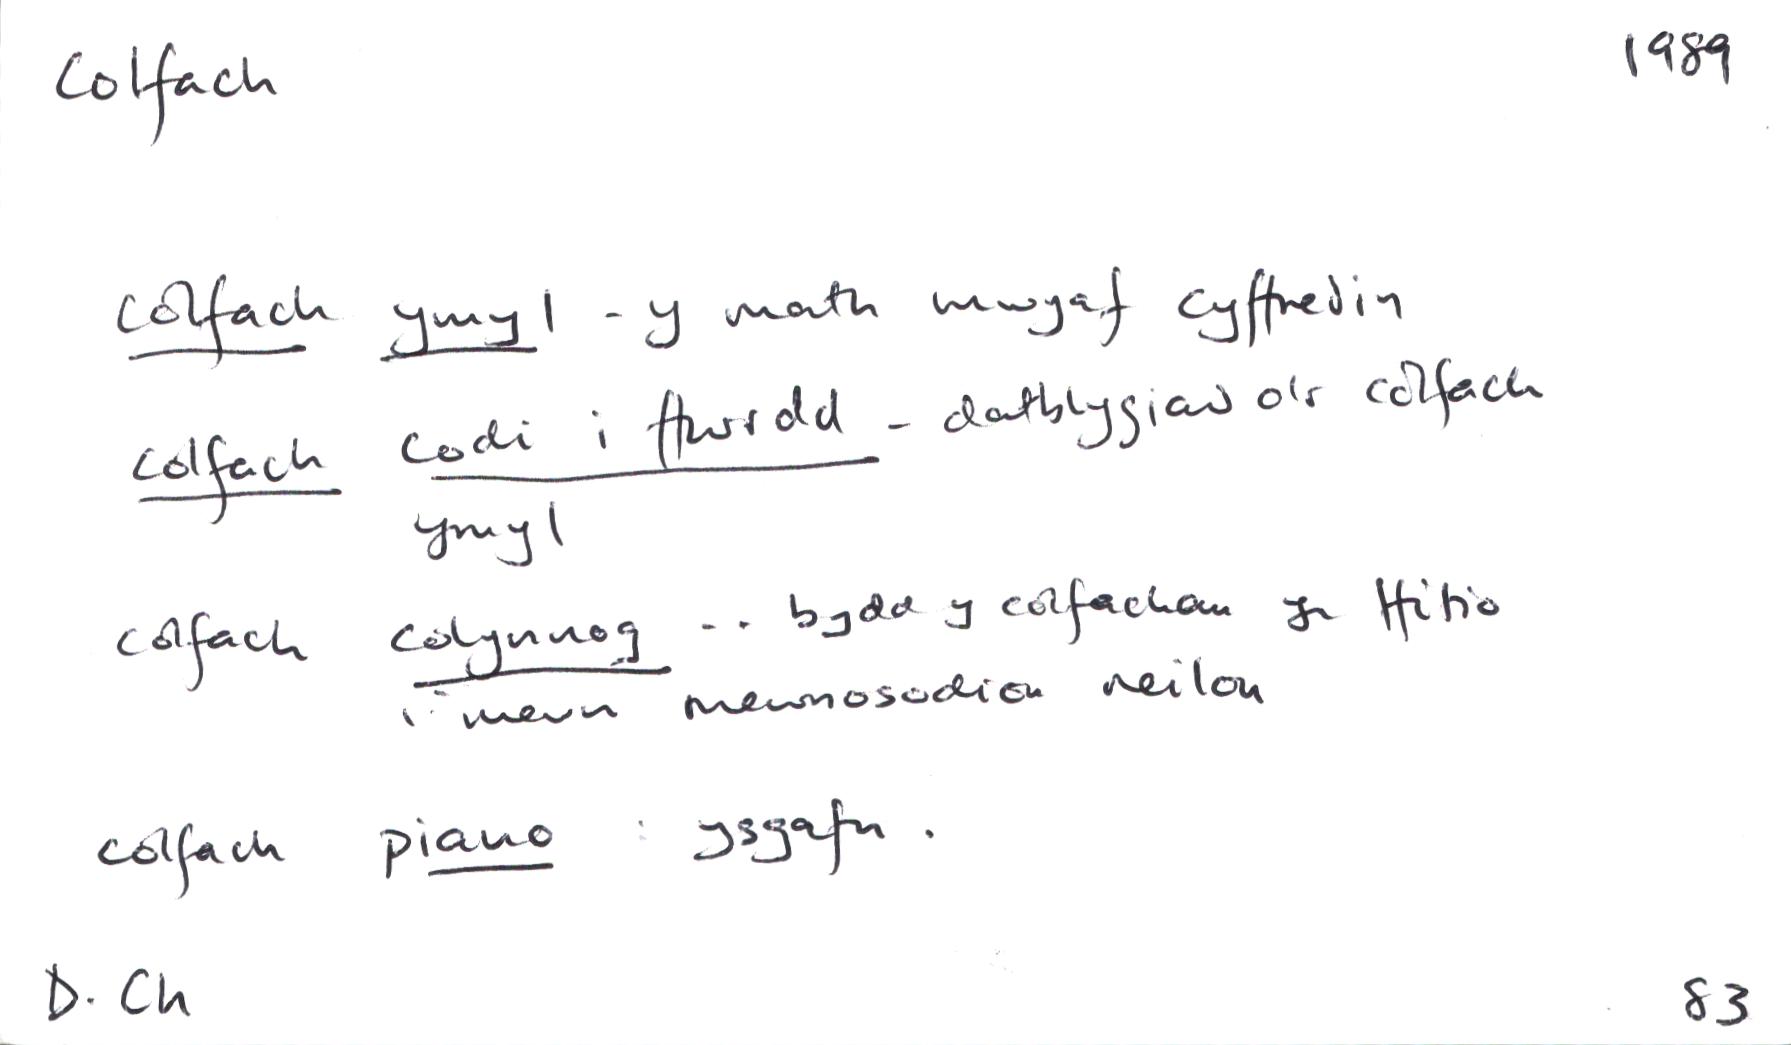 Colfach 1989
colfach ymyl - y math mwyaf cyffredin
colfach codi i ffwrdd - datblygiad o'r colfach
ymyl
colfach colynnog .. bydd y colfachau yn ffitio
i mewn mewnosodion neilon
colfach piano : ysgafn.
D. Ch 83